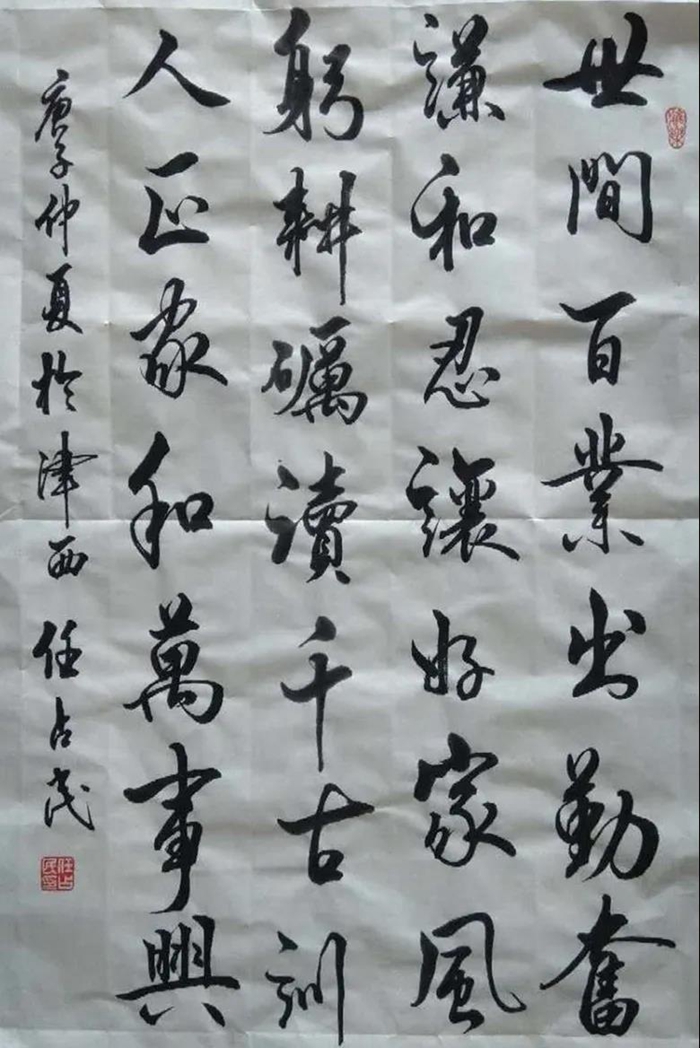 世間百業出勤奮
謙和忍讓好家風
躬耕礪讀千古訓
人正家和萬事興
庚子仲夏於津西任占茂
任占茂印